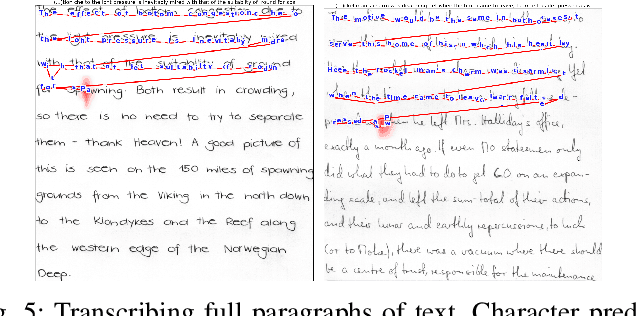 The effect of bottom congestion due to
the light pressure is inevitably mixed
with that of the suitability of ground
for spawning. Both result in crowding,
so there is no need to try to separate
them - thank Heaven! A good picture of
this is seen on the 150 miles of spawning
grounds from the Viking in the north down
to the Klondykes and the Reef along
the western edge of the Norwegian
Deep.
The motive would be the same in both cases: to
serve this home of his in which his heart lay.
Here the rocket man's charm was
when the time came to leave, Harry felt de-
pressed, as when he left Mrs. Halliday's office,
exactly a month ago. If even statesmen only
did what they had to do to get 60 on an expan-
ding scale, and left the sum total of their actions,
and their lunar and earthly repercussions, to luck
(or to), there was a vacuum where there should
be a centre of trust, responsible for the maintenance
g. 5: Transcribing full paragraphs of text. Character pred